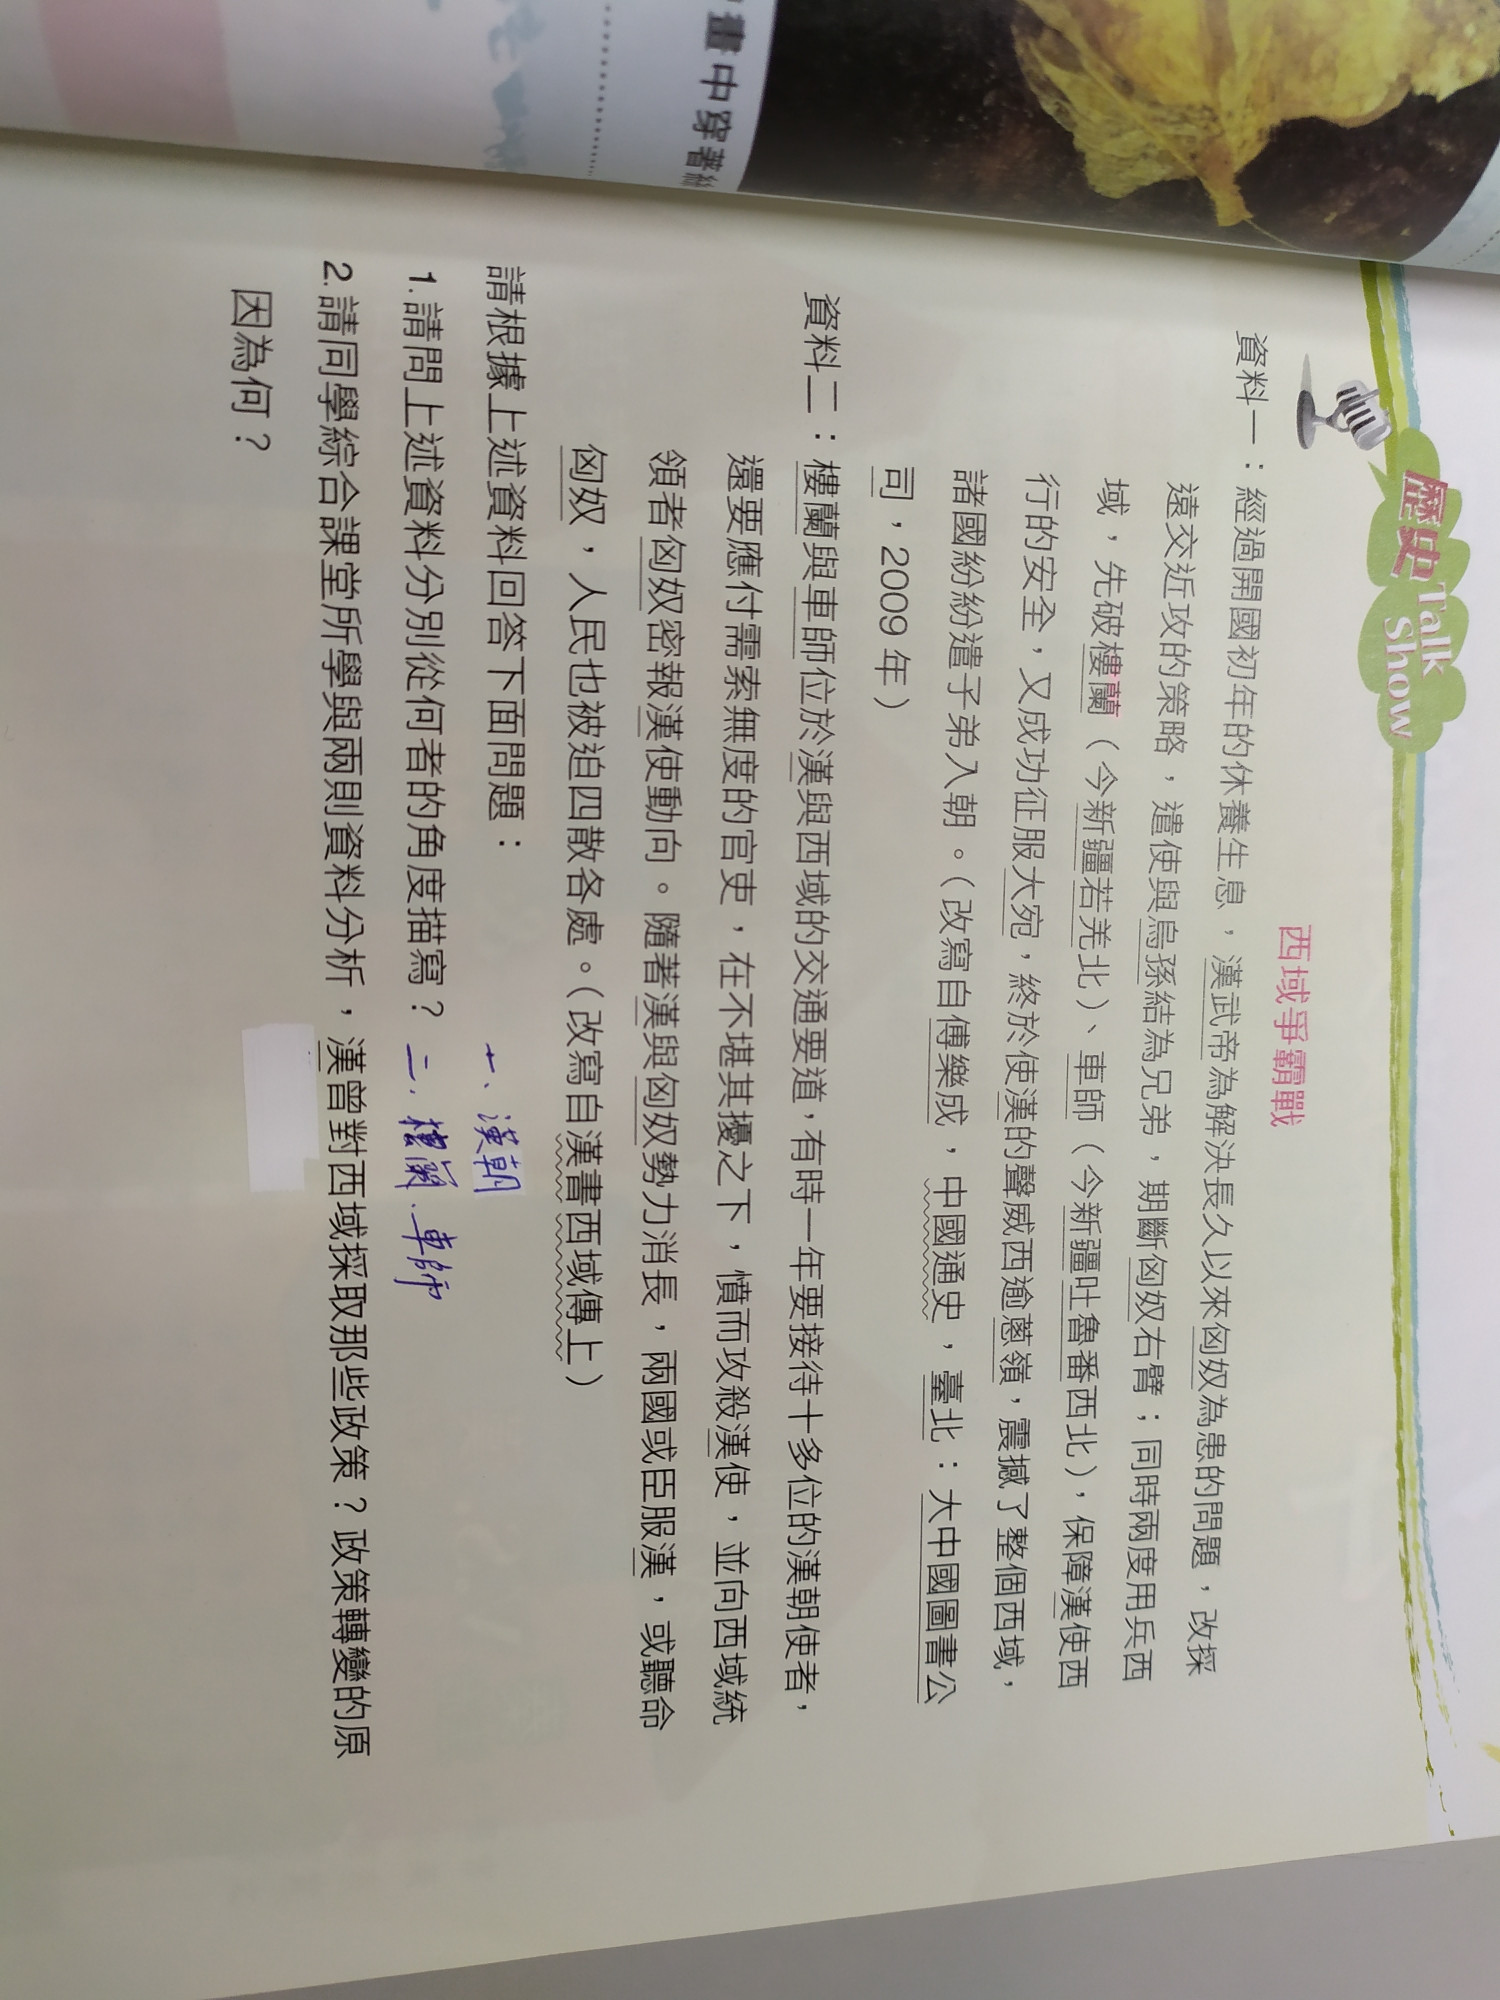 畫中穿著
歷史Talk Show
西域爭霸戰
資料一：經過開國初年的休養生息，漢武帝為解決長久以來匈奴為患的問題，改採
遠交近攻的策略，遣使與烏孫結為兄弟，期斷匈奴右臂；同時兩度用兵西
域，先破樓蘭（今新疆若羌北）、車師（今新疆吐魯番西北），保障漢使西
行的安全，又成功征服大宛，終於使漢的聲威西逾蔥嶺，震撼了整個西域，
諸國紛紛遣子弟入朝。（改寫自傅樂成，中國通史，臺北：大中國圖書公
司，2009年）
資料二：樓蘭與車師位於漢與西域的交通要道，有時一年要接待十多位的漢朝使者，
還要應付需索無度的官吏，在不堪其擾之下，憤而攻殺漢使，並向西域統
領者匈奴密報漢使動向。隨著漢與匈奴勢力消長，兩國或臣服漢，或聽命
匈奴，人民也被迫四散各處。（改寫自漢書西域傳上）
請根據上述資料回答下面問題：
1.請問上述資料分別從何者的角度描寫？
一、漢朝
二、樓蘭、車師
2.請同學綜合課堂所學與兩則資料分析，漢曾對西域採取那些政策？政策轉變的原
因為何？